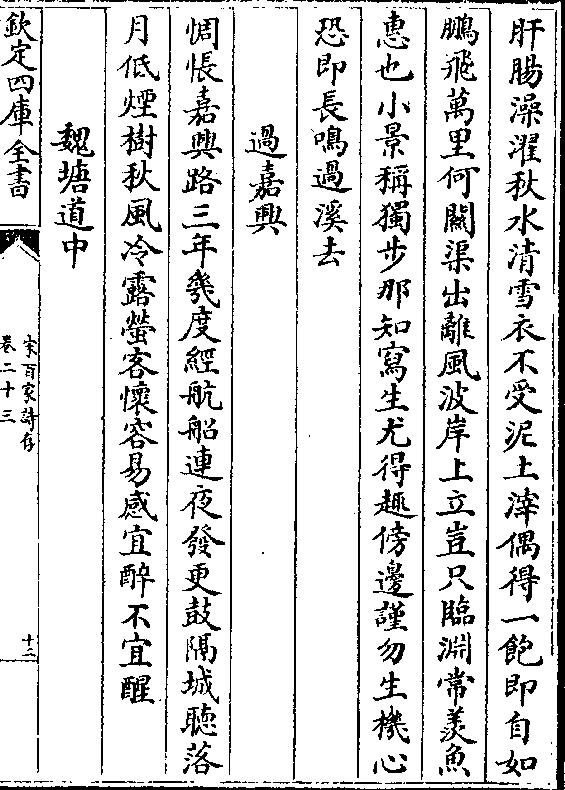 肝腸澡濯秋水清雪衣不受泥土滓偶得一飽即自如
鵬飛萬里何闗渠出離風波岸上立豈只臨淵常羨魚
惠也小景稱獨步那知寫生尤得趣傍邊謹勿生機心
恐即長鳴過溪去
過嘉興
惆悵嘉興路三年幾度經航船連夜發更鼓隔城聴落
月低煙樹秋風冷露螢客懷容易感宜醉不宜醒
魏塘道中
欽定四庫全書
宋百家詩存
卷二十三
十二